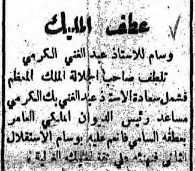 عطف المليك
وسام للاستاذ عبد الغني الكرمي
تلطف صاحب الجلالة الملك المعظم
فشمل سعادة الاستاذ عبد الغني بك الكرمي
مساعد رئيس الديوان الملكي العامر
بعطفه السامي فانعم عليه بوسام الاستقلال